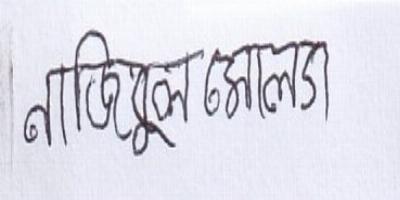 নাজিবুল মোলডা